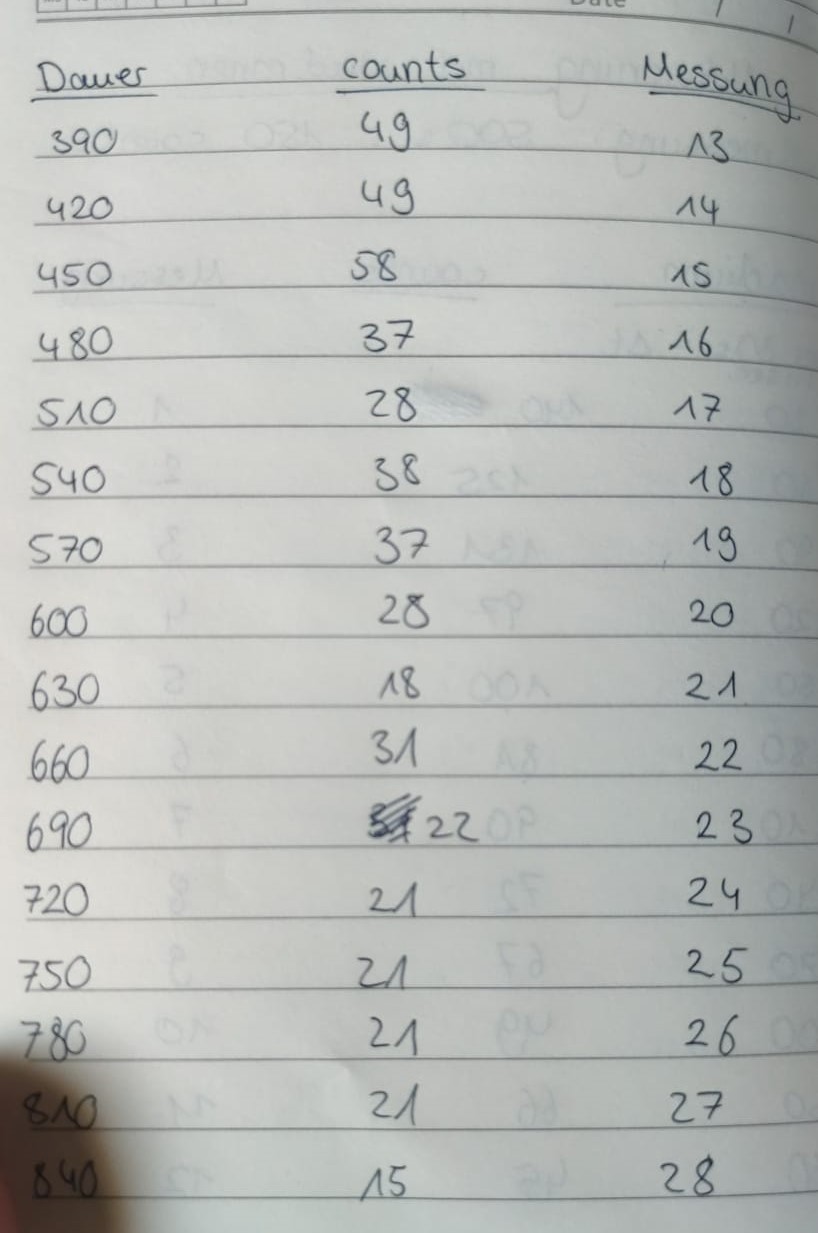 Date / /
Dauer counts Messung
390 49 13
420 49 14
450 58 15
480 37 16
510 28 17
540 38 18
570 37 19
600 28 20
630 18 21
660 31 22
690 22 23
720 21 24
750 21 25
780 21 26
810 21 27
840 15 28